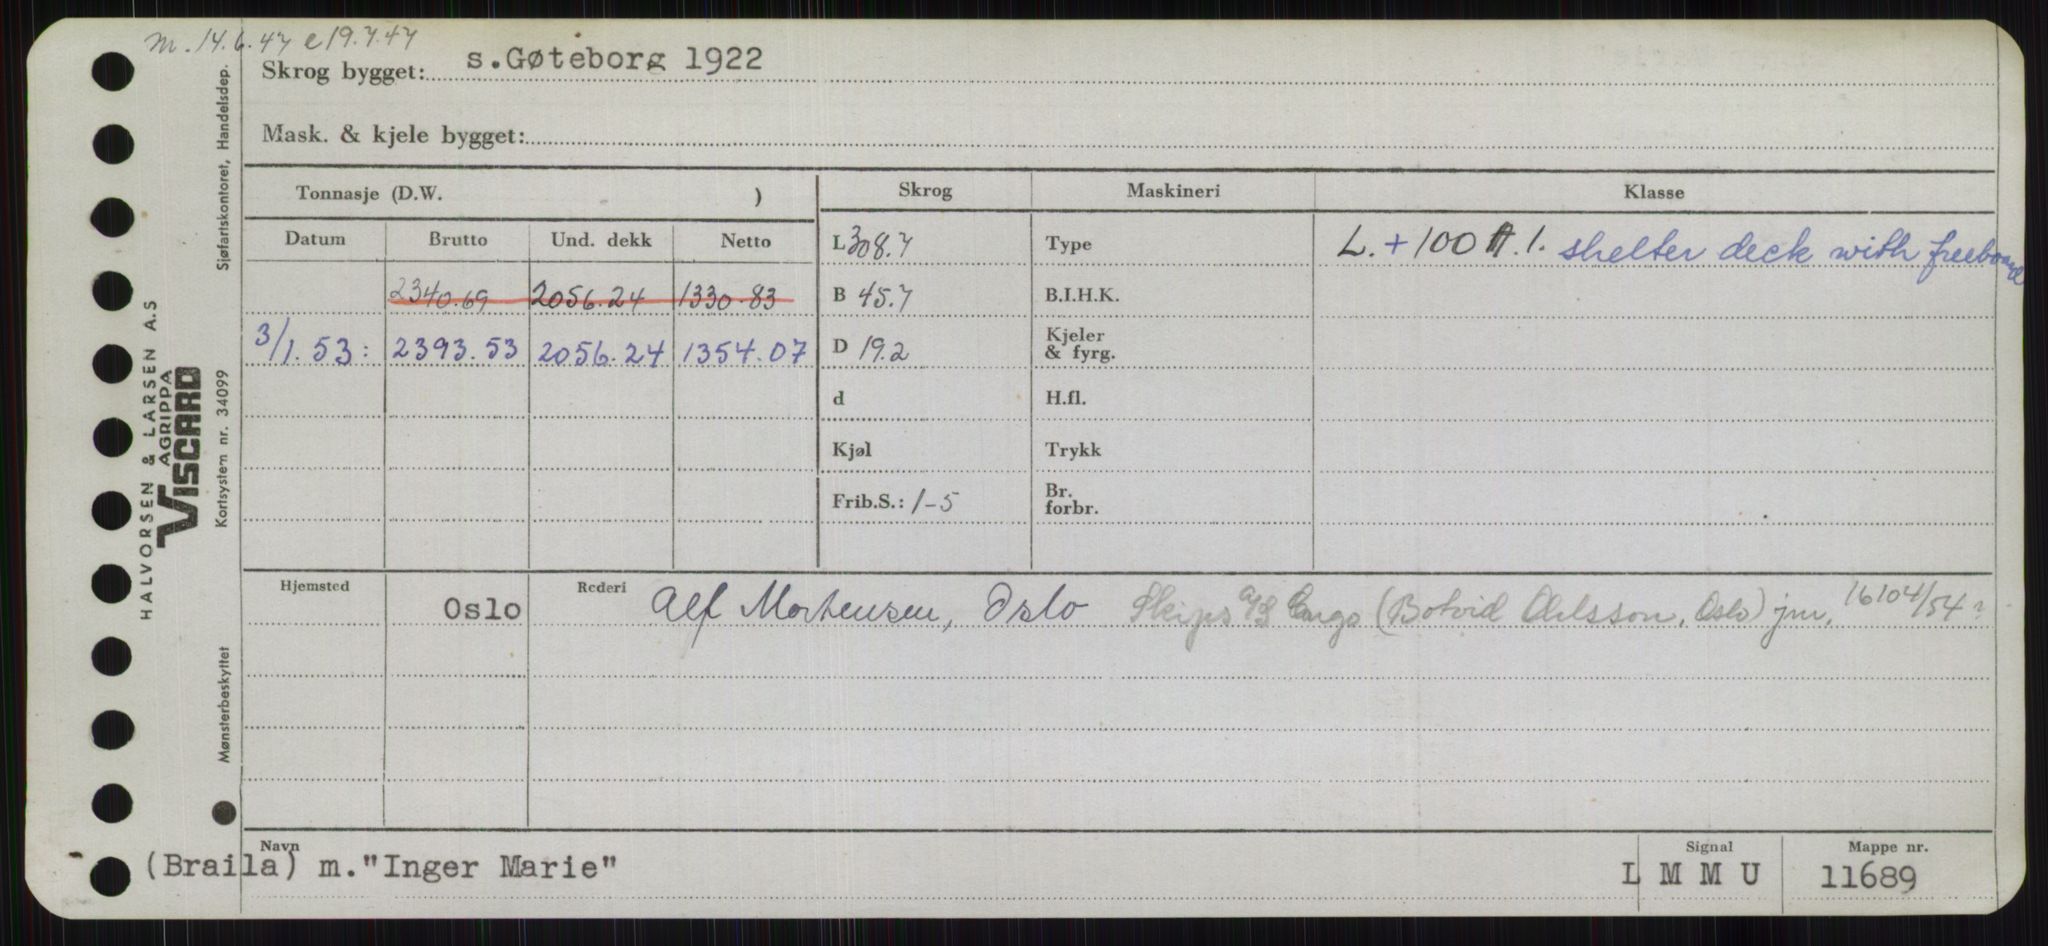 m. 14.6.47 e 19.7.47
Skrog bygget: s.Gøteborg 1922
Mask. & kjele bygget:
Tonnasje (D.W. ) Skrog Maskineri Klasse
Datum Brutto Und. dekk Netto L 308.7 Type L. + 100 A.1. shelter deck with freeboard
2340.69 2056.24 1330.83 B 45.7 B.I.H.K.
3/1.53: 2393.53 2056.24 1354.07 D 19.2 Kjeler & fyrg.
d H.fl.
Kjøl Trykk
Frib.S.: 1-5 Br. forbr.
Hjemsted Rederi
Oslo Alf Mortensen, Oslo Skips A/S (Botvid Ohlsson, Oslo) jnr. 16104/54?
Navn Signal Mappe nr.
(Braila) m."Inger Marie" L M M U 11689
HALVORSEN & LARSEN A.S
AGRIPPA
VISCARD
Mønsterbeskyttet Kortsystem nr. 34099 Sjøfartskontoret, Handelsdep.